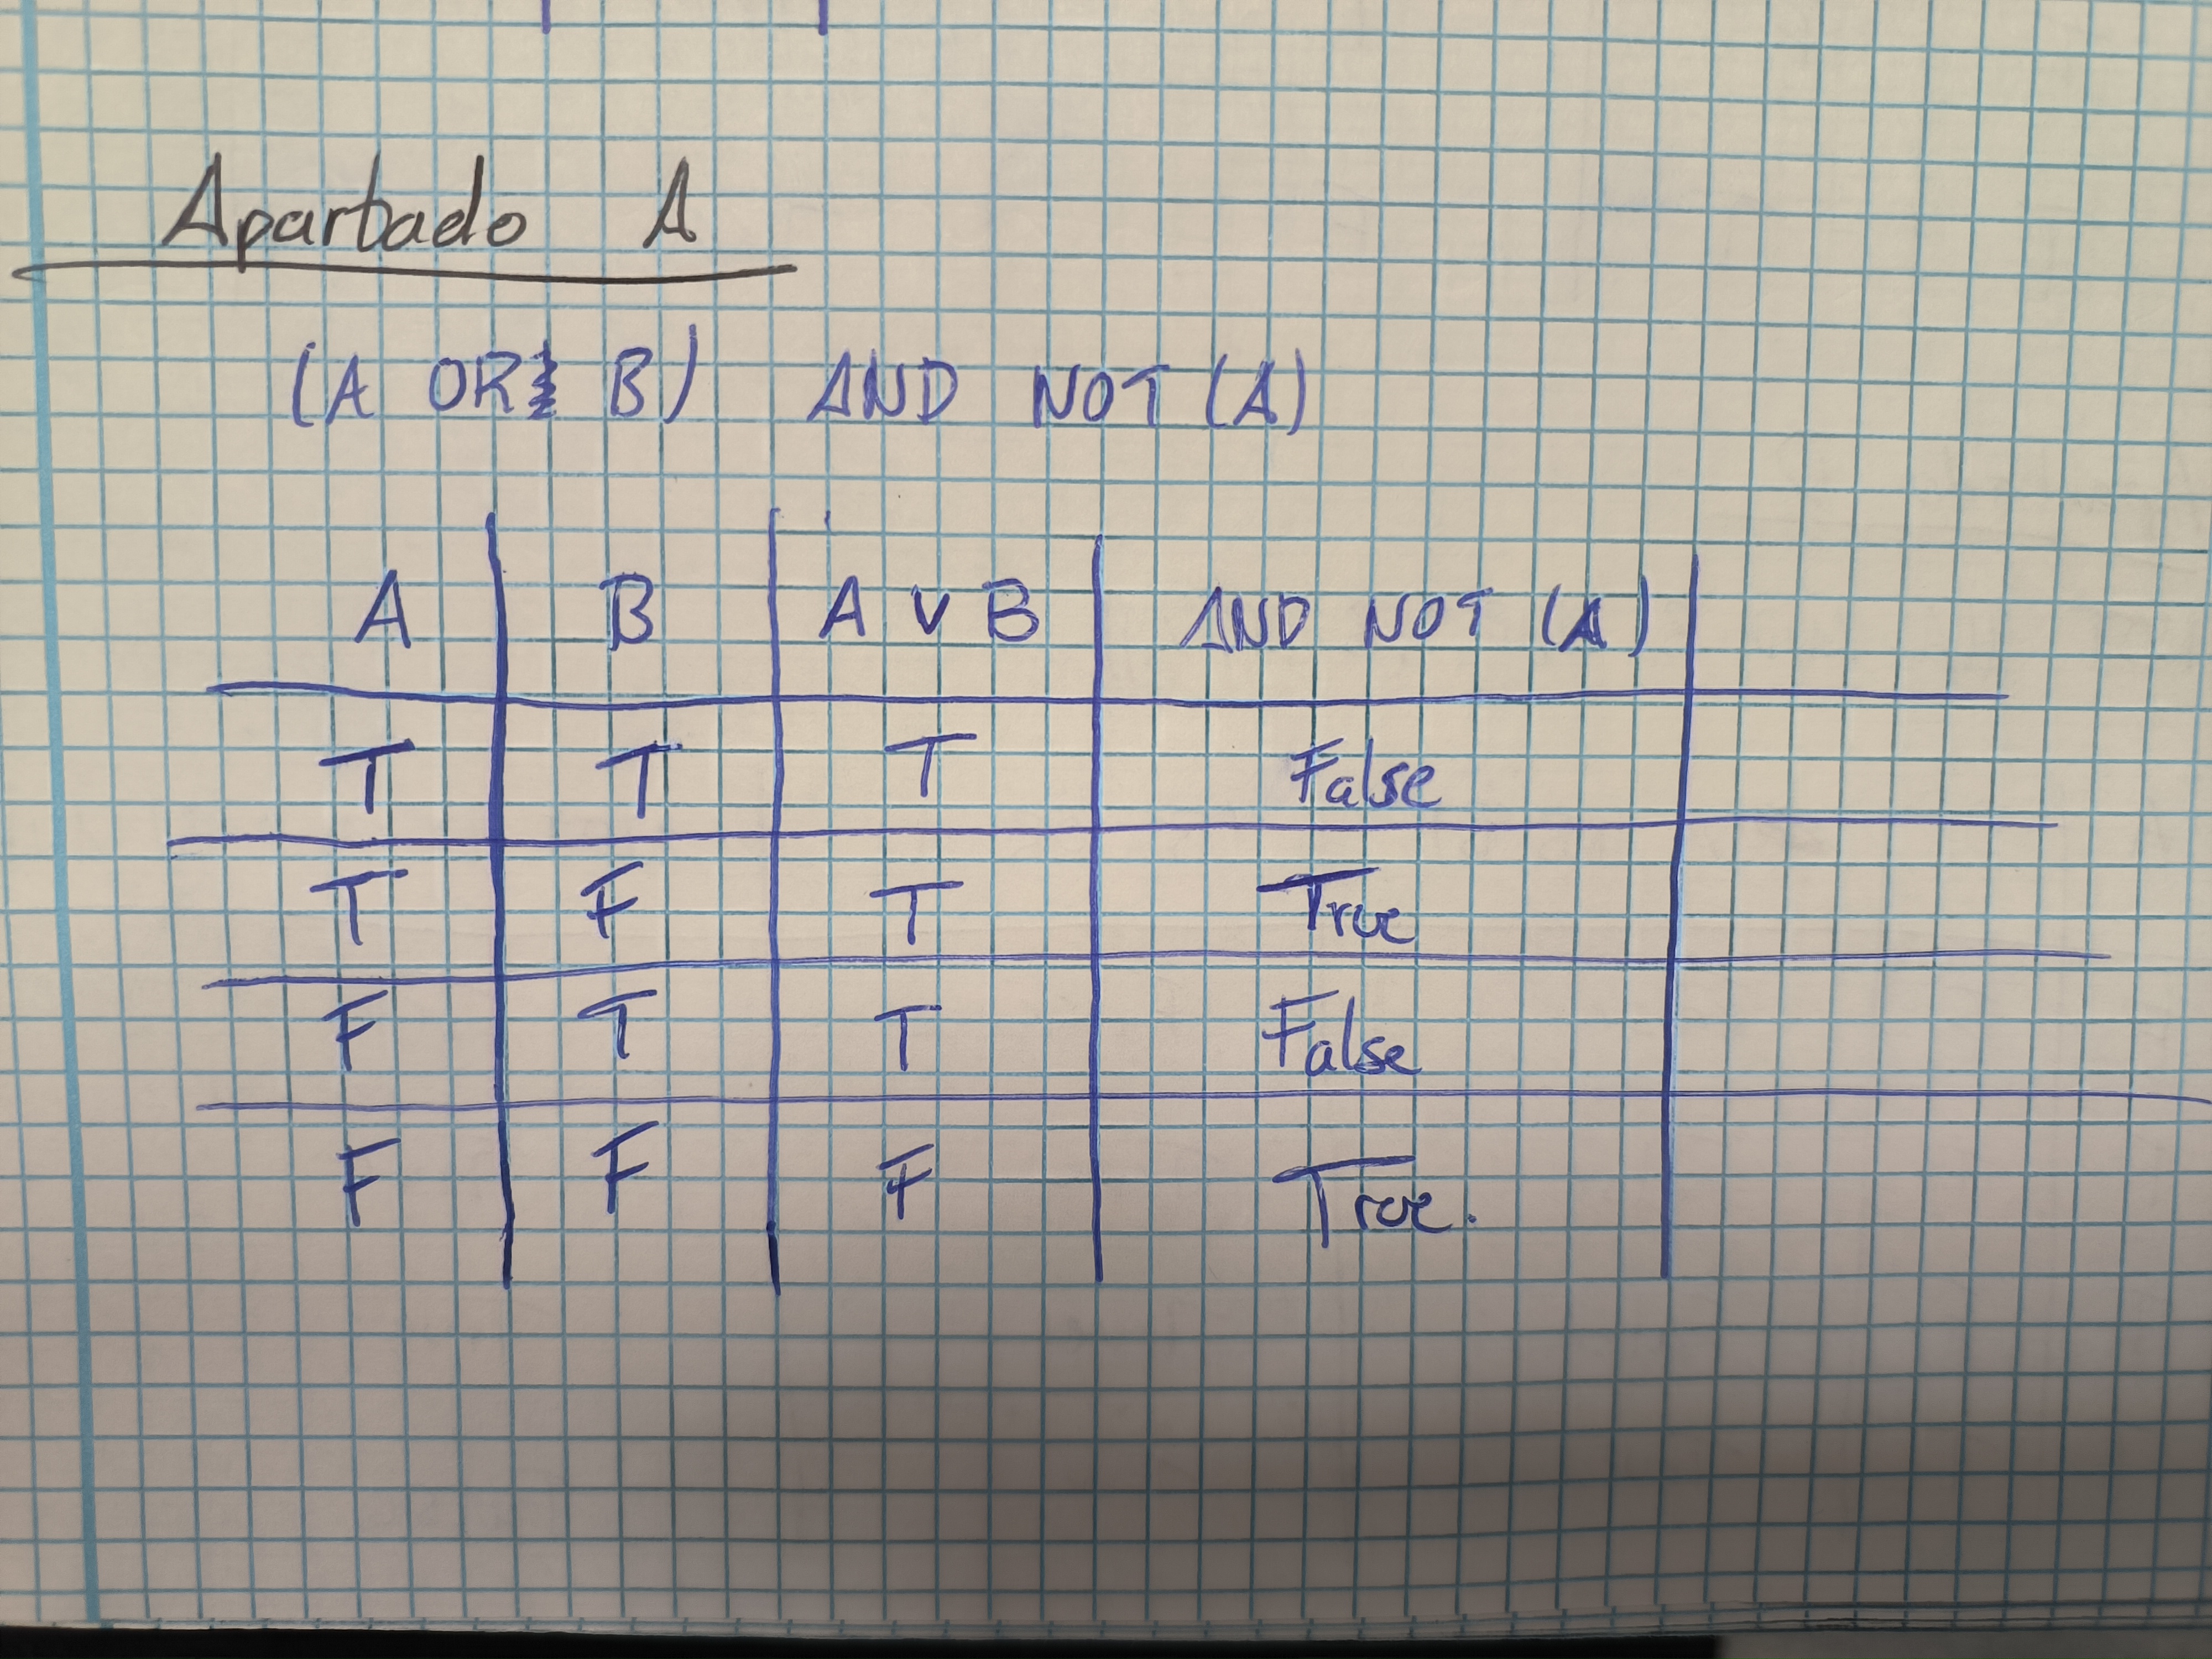 Apartado A
(A OR B) AND NOT (A)
A B A V B AND NOT (A)
T T T False
T F T True
F T T False
F F F True.